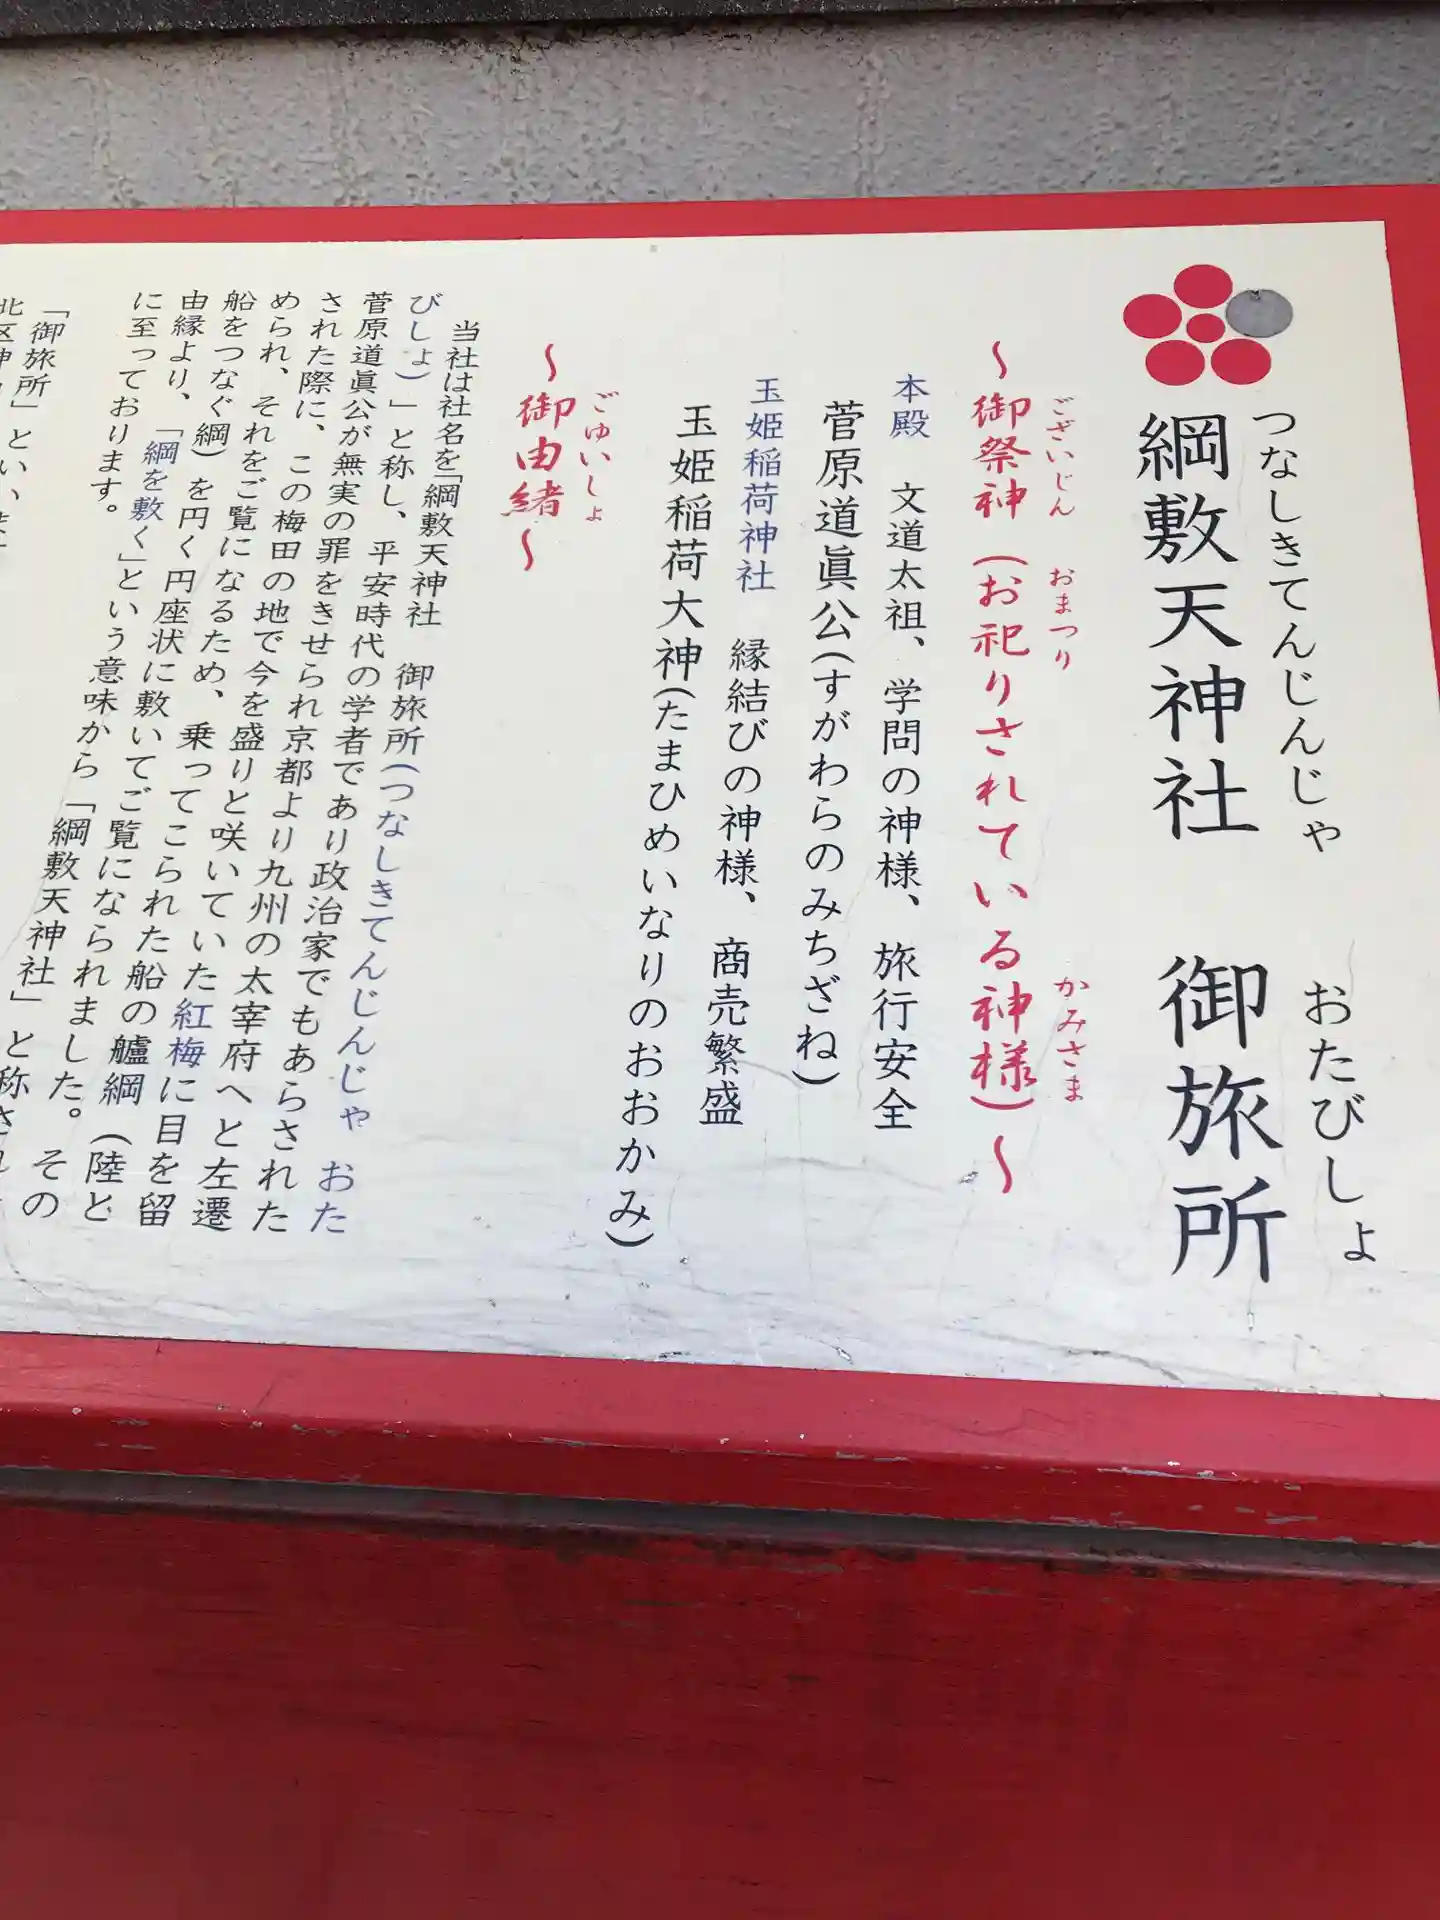 つなしきてんじんじゃ　おたびしょ
綱敷天神社　御旅所
ございじん　おまつり　かみさま
～御祭神（お祀りされている神様）～
本殿　文道太祖、学問の神様、旅行安全
菅原道眞公(すがわらのみちざね)
玉姫稲荷神社　縁結びの神様、商売繁盛
玉姫稲荷大神(たまひめいなりのおおかみ)
ごゆいしょ
～御由緒～
当社は社名を「綱敷天神社　御旅所(つなしきてんじんじゃ　おた
びしょ）」と称し、平安時代の学者であり政治家でもあらされた
菅原道眞公が無実の罪をきせられ京都より九州の太宰府へと左遷
された際に、この梅田の地で今を盛りと咲いていた紅梅に目を留
められ、それをご覧になるため、乗ってこられた船の艫綱（陸と
船をつなぐ綱）を円く円座状に敷いてご覧になられました。その
由縁より、「綱を敷く」という意味から「綱敷天神社」と称され
に至っております。
「御旅所」といいま